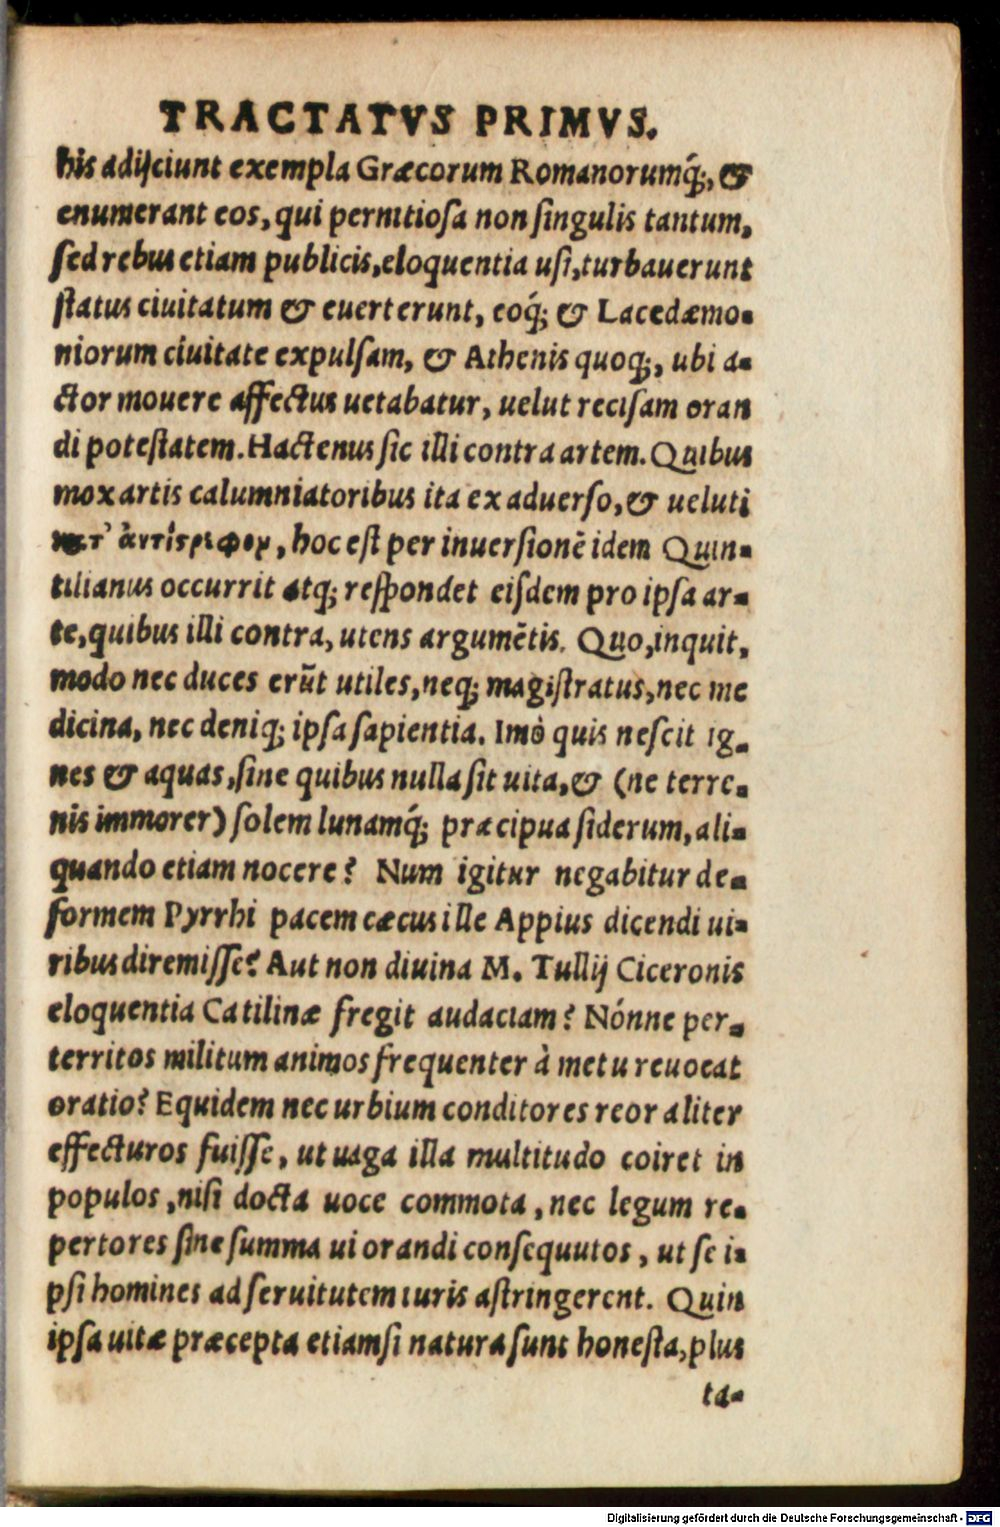 TRACTATVS PRIMVS.
his adijciunt exempla Græcorum Romanorumq́;, &
enumerant eos, qui pernitiosa non singulis tantum,
sed rebus etiam publicis, eloquentia usi, turbauerunt
status ciuitatum & euerterunt, eoq́; & Lacedæmo-
niorum ciuitate expulsam, & Athenis quoq;, ubi a-
ctor mouere affectus uetabatur, uelut recisam oran
di potestatem. Hactenus sic illi contra artem. Quibus
mox artis calumniatoribus ita ex aduerso, & ueluti
κατ' ἀντίςριφον, hoc est per inuersionē idem Quin-
tilianus occurrit atq; respondet eisdem pro ipsa ar-
te, quibus illi contra, utens argumētis. Quo, inquit,
modo nec duces erūt utiles, neq; magistratus, nec me
dicina, nec deniq; ipsa sapientia. Imò quis nescit ig-
nes & aquas, sine quibus nulla sit uita, & (ne terre-
nis immorer) solem lunamq́; præcipua siderum, ali-
quando etiam nocere? Num igitur negabitur de-
formem Pyrrhi pacem cæcus ille Appius dicendi ui-
ribus diremisse? Aut non diuina M. Tullij Ciceronis
eloquentia Catilinæ fregit audaciam? Nónne per-
territos militum animos frequenter à metu reuocat
oratio? Equidem nec urbium conditores reor aliter
effecturos fuisse, ut uaga illa multitudo coiret in
populos, nisi docta uoce commota, nec legum re-
pertores sine summa ui orandi consequutos, ut se i-
psi homines ad seruitutem iuris astringerent. Quin
ipsa uitæ præcepta etiamsi natura sunt honesta, plus
ta-
Digitalisierung gefördert durch die Deutsche Forschungsgemeinschaft - DFG